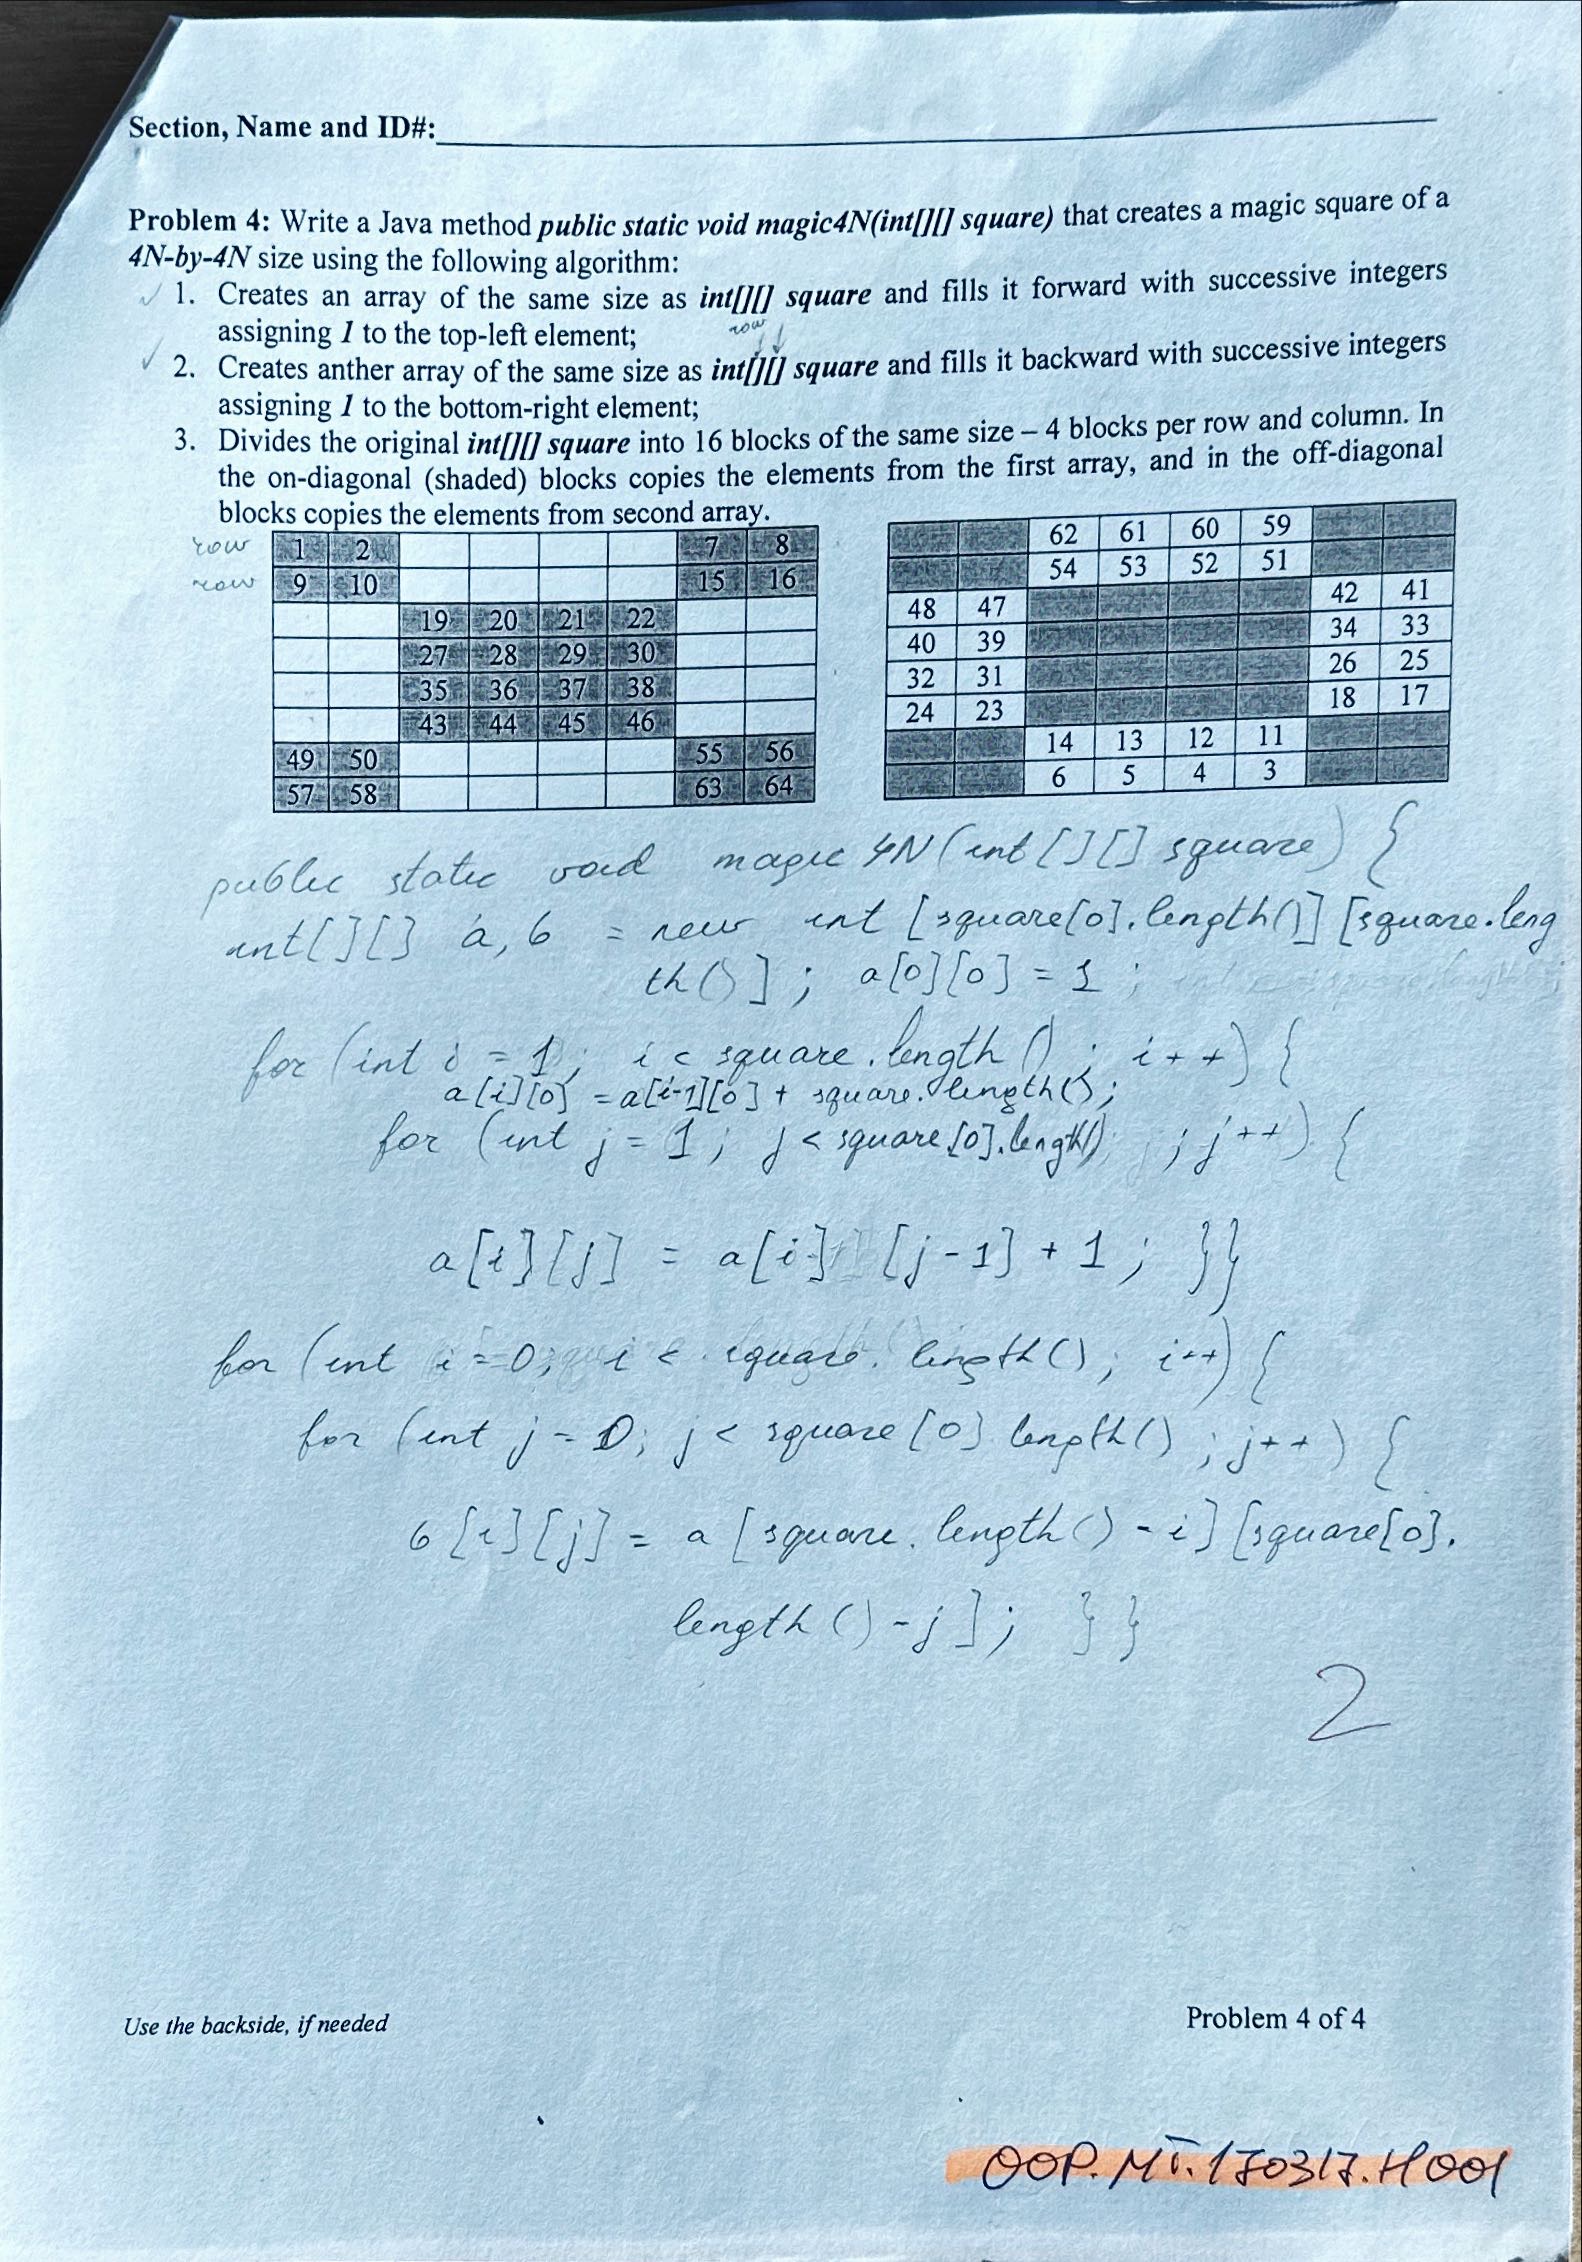 Section, Name and ID#:
Problem 4: Write a Java method public static void magic4N(int[][] square) that creates a magic square of a
4N-by-4N size using the following algorithm:
✓ 1. Creates an array of the same size as int[][] square and fills it forward with successive integers
assigning 1 to the top-left element;
row ↓ ↓
✓ 2. Creates anther array of the same size as int[][] square and fills it backward with successive integers
assigning 1 to the bottom-right element;
3. Divides the original int[][] square into 16 blocks of the same size – 4 blocks per row and column. In
the on-diagonal (shaded) blocks copies the elements from the first array, and in the off-diagonal
blocks copies the elements from second array.
row 1 2 7 8
row 9 10 15 16
19 20 21 22
27 28 29 30
35 36 37 38
43 44 45 46
49 50 55 56
57 58 63 64
62 61 60 59
54 53 52 51
48 47 42 41
40 39 34 33
32 31 26 25
24 23 18 17
14 13 12 11
6 5 4 3
public static void magic 4N (int [][] square) {
int[][] a, b = new int [square[0].length()] [square.leng
th()]; a[0][0] = 1;
for (int i = 1; i < square.length(); i++) {
a[i][0] = a[i-1][0] + square.length();
for (int j = 1; j < square[0].length(); j++) {
a[i][j] = a[i][j-1] + 1; }}
for (int i = 0; i < square.length(); i++) {
for (int j = 0; j < square[0] length(); j++) {
b[i][j] = a [square.length() - i] [square[0].
length() - j]; }}
2
Use the backside, if needed
Problem 4 of 4
OOP.MT.170317.H001